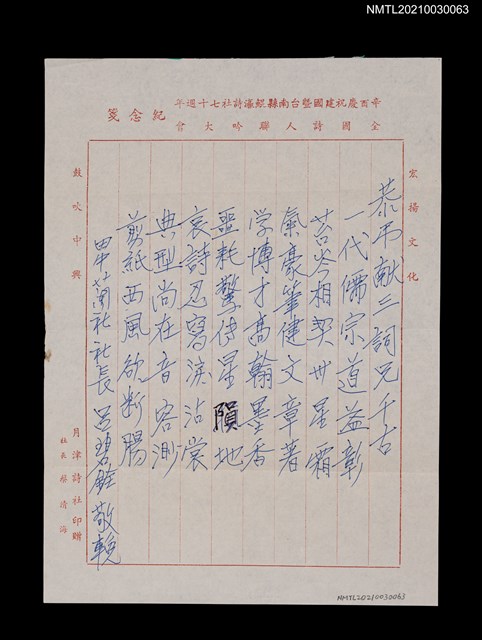 NMTL20210030063
辛酉慶祝建國暨台南縣鯤瀛詩社七十週年
全國詩人聯吟大會
紀念箋
宏揚文化
恭弔献三詞兄千古
一代儒宗道益彰
苔岑相契卅星霜
氣豪筆健文章著
学博才高翰墨香
噩耗驚传星隕地
哀詩忍寫淚沾裳
典型尚在音容渺
剪紙西風欲斷腸
田中兰社社長 呂碧銓 敬輓
鼓吹中興
月津詩社印贈
社長 蔡清海
NMTL20210030063